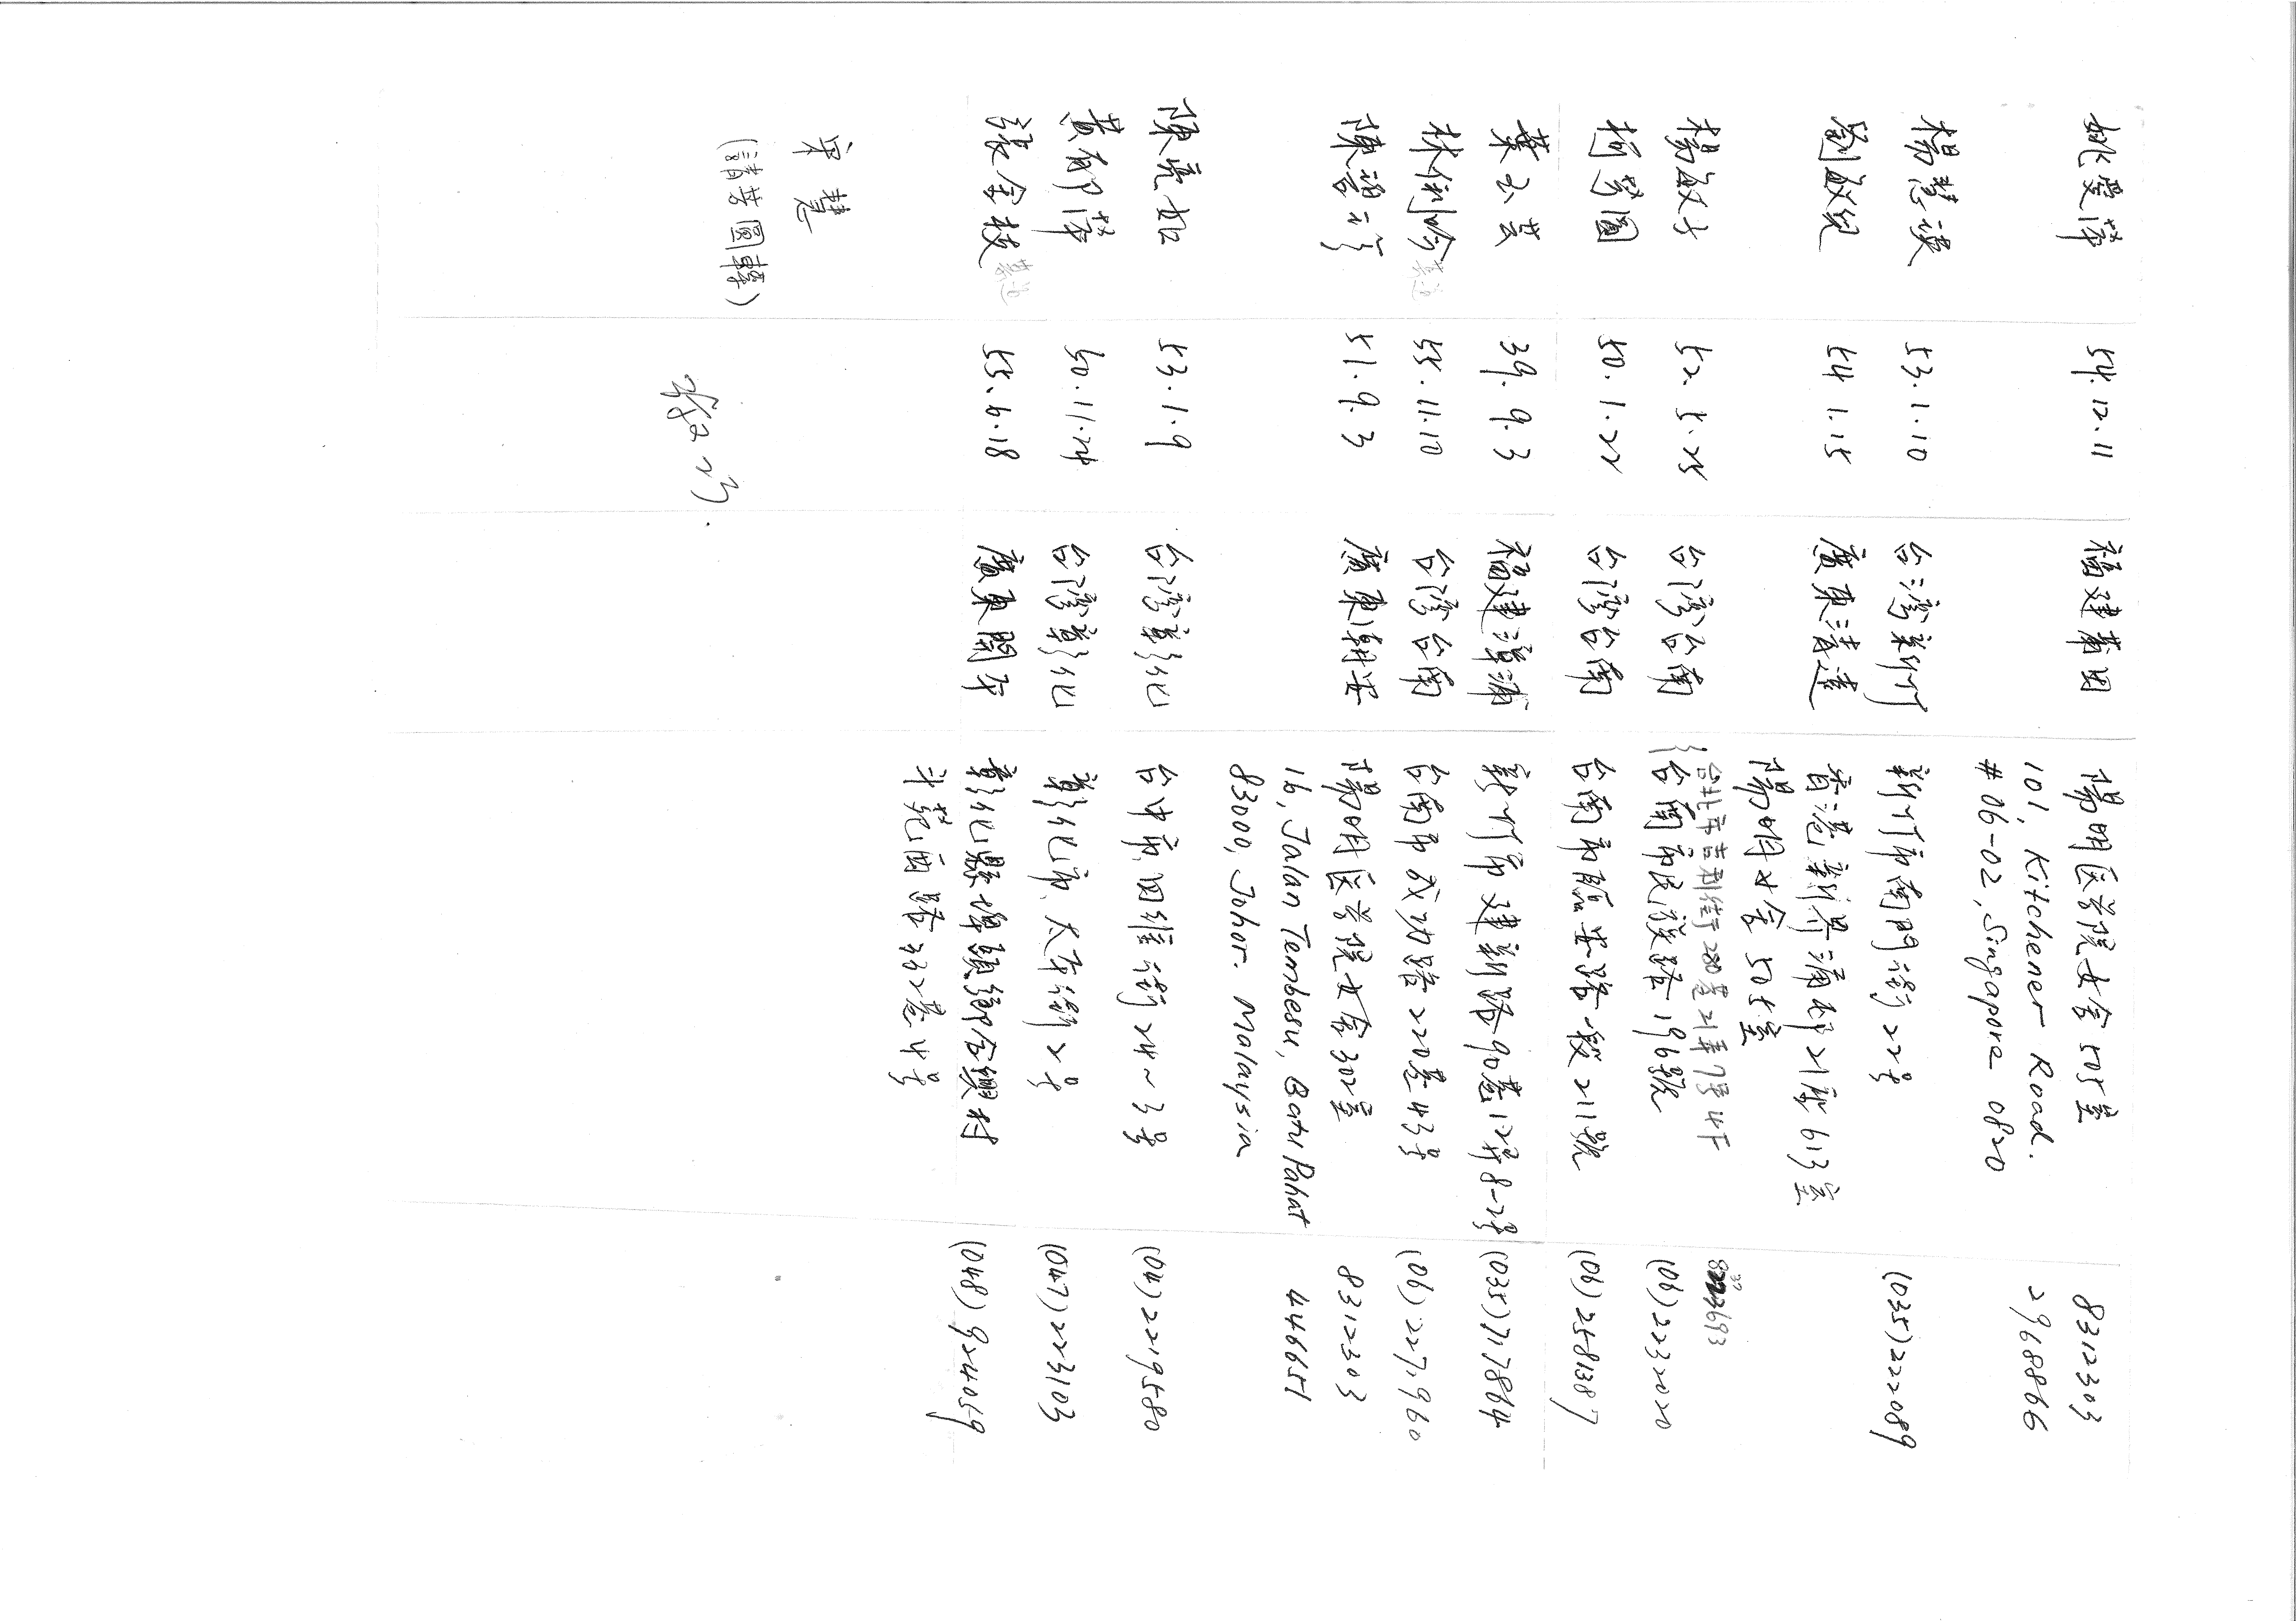 姚愛萍 54.12.11 福建莆田 陽明医学院女舍505室 8312303
101, Kitchener Road. 2968866
#06-02, Singapore 0820
楊慧謨 53.1.10 台灣新竹 新竹市南門街22号 (035)222089
劉敏兒 54 1.15 廣東清遠 香港新界蒲邨21座613室
陽明女舍505室
台北市吉利街280巷21弄7号4F 3693
楊敏子 52.5.25 台灣台南 台南市民族路196號 (06)2232020
柯芳圓 50.1.22 台灣台南 台南市臨安路一段211號 (06)2581387
葉玉芸 39.9.3 福建漳浦 新竹市建新路90巷12弄8-2号 (035)717864
林俐吟 55.11.10 台灣台南 台南市成功路220巷43号 (06)2271960
陳碧云 51.9.3 廣東朝安 陽明医学院女舍302室 8312303
16, Jalan Tembesu, Batu Pahat 446651
83000, Johor. Malaysia
陳亮妃 53.1.9 台灣彰化 台中市四維街24~3号 (04)2219580
黃郁萍 50.11.24 台灣彰化 彰化市太平街2号 (047)223103
張金枝 55.6.18 廣東開平 彰化縣埤頭鄉合興村 (048)924059
斗苑西路332巷4号
宋慧
(請芳圓轉)